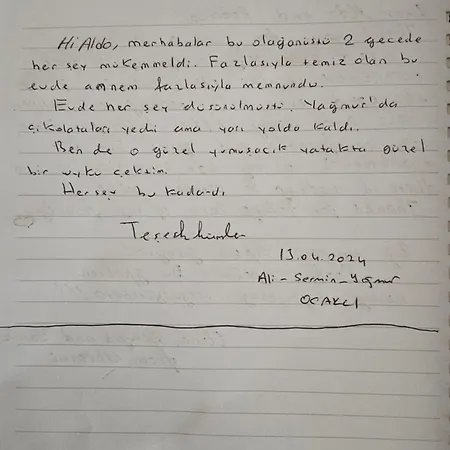 Hi Aldo, merhabalar bu olağanüstü 2 gecede
her şey mükemmeldi. Fazlasıyla temiz olan bu
evde annem fazlasıyla memnundu.
Evde her şey düşünülmüştü, Yağmur'da
çikolataları yedi ama yarı yolda kaldı.
Ben de o güzel yumuşacık yatakta güzel
bir uyku çektim.
Her şey bu kadardı
Teşekkürler
13.04.2024
Ali - Sermin - Yağmur
OCAKLI